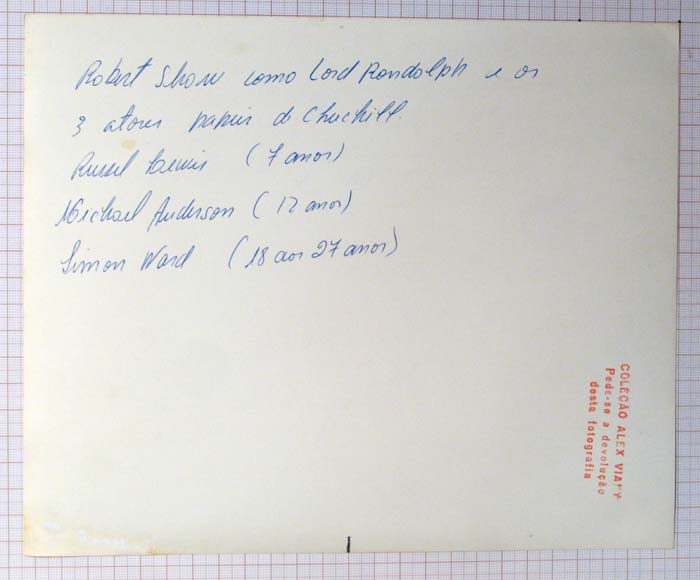 Robert Show como Lord Randolph e os
3 atores papeis de Chuchill.
Russel Lewis (7 anos)
Michael Anderson (12 anos)
Simon Ward (18 aos 27 anos)
COLEÇÃO ALEX VIANY
Pede-se a devolução
desta fotografia